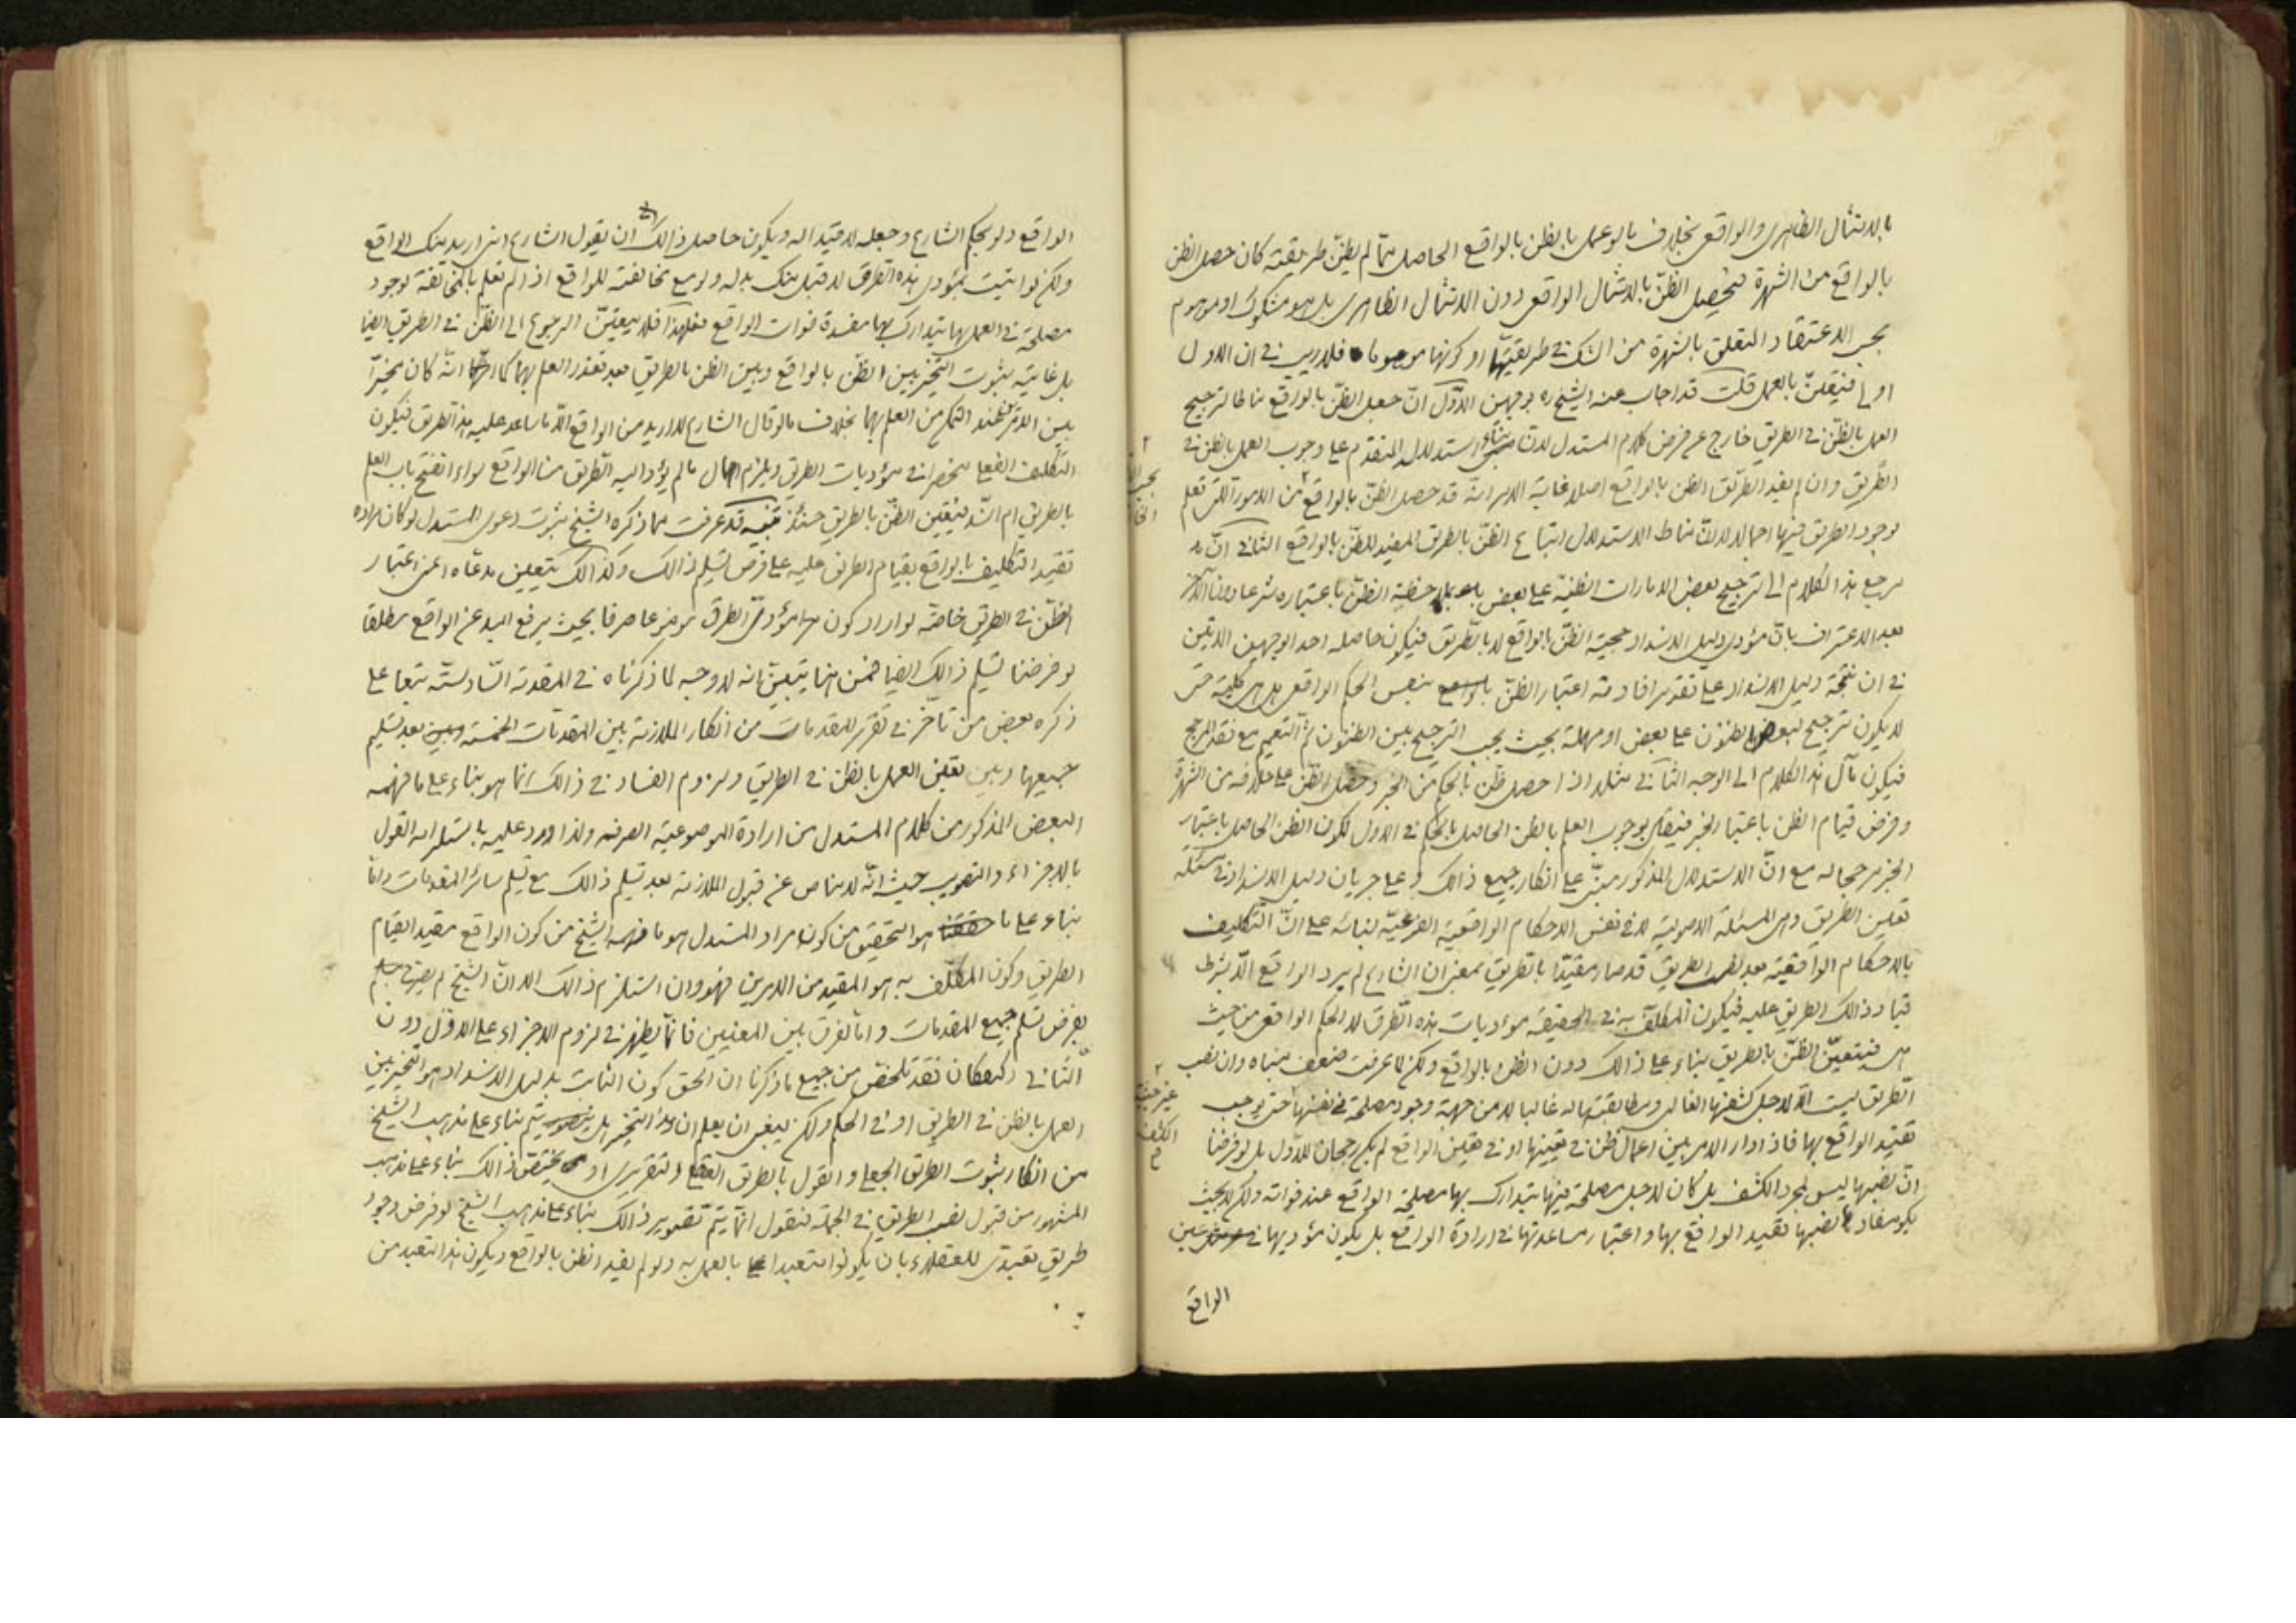 بالامتثال الظاهرى والواقعى بخلاف ما لو عمل بالظن بالواقع الحاصل مما لم يظنّ طريقيته كان حصل الظن
بالواقع من الشهرة فيحصل الظنّ بالامتثال الواقعى دون الامتثال الظاهرى بل هو مشكوك او موهوم
بحسب الاعتقاد المتعلق بالشهرة من الشك فى طريقيتها او كونها موهوما فلا ريب فى ان الاول
اولى فيتعيّن بالعمل قلت قد اجاب عنه الشيخ ره بوجهين الاوّل انّ جعل الظنّ بالواقع مناطا لترجيح
العمل بالظنّ فى الطريق خارج عن فرض كلام المستدل لان بناء استدلاله المتقدم على وجوب العمل بالظن فى
الطّريق وان لم يفد الطريق الظن بالواقع اصلا غاية الامر انه قد حصل الظنّ بالواقع من الامور التى نعلم
بوجود الطريق فيها اجمالا لا انّ مناط الاستدلال اتباع الظنّ بالطريق المفيد للظنّ بالواقع الثانى انّ
مرجع هذا الكلام الى ترجيح بعض الامارات الظنية على بعض بملاحظة الظنّ باعتباره شرعا دون الآخر
بعد الاعتراف بان مؤدى دليل الانسداد حجية الظنّ بالواقع لا بالطّريق فيكون حاصله احد الوجهين الآتيين
فى ان نتيجة دليل الانسداد على تقدير افادته اعتبار الظنّ بنفس الحكم الواقعى هل هى كلية حتى
لا يكون ترجيح لبعض الظنون على بعض او مهملة بحيث يجب الترجيح بين الظنون ثم التعميم مع فقد المرجح
فيكون مآل هذا الكلام الى الوجه الثانى مثلا اذا حصل ظن بالحكم من الخبر وحصل الظن على خلافه من الشهرة
وفرض قيام الظن باعتبار الخبر فيقال بوجوب العمل بالظن الحاصل بالحكم فى الاول لكون الظن الحاصل باعتبار
الخبر مرجحا له مع انّ الاستدلال المذكور مبنىّ على انكار جميع ذالك وعلى جريان دليل الانسداد فى مسئلة
تعيين الطريق وهى المسئلة الاصولية لا فى نفس الاحكام الواقعية الفرعيّة لبنائه على انّ التّكليف
بالاحكام الواقعية بعد نصب الطريق قد صار مقيّدا بالطّريق بمعنى ان الشارع لم يرد الواقع الّا بشرط
قيام ذالك الطريق عليه فيكون المكلّف به فى الحقيقة مؤديات هذه الطّرق لا الحكم الواقعى من حيث
هى فيتعيّن الظنّ بالطريق بناء على ذالك دون الظن بالواقع ولكن لما عرفت ضعف مبناه وان نصب
الطّريق ليست الّا لاجل كشفها الغالبى ومطابقتها له غالبا لا من جهة وجود مصلحة فى نفسها حتى يوجب
تقييد الواقع بها فاذا دار الامر بين اعمال ظن فى تعيينها او فى تعيين الواقع لم يكن رجحان للاوّل بل لو فرضنا
انّ نصبها ليس لمجرد الكشف بل كان لاجل مصلحة فيها يتدارك بها مصلحة الواقع عند فواته ولكن لا بحيث
يكون مفاد نصبها تقييد الواقع بها واعتبار مساعدتها فى ارادة الواقع بل يكون مؤديها فى عين
الواقع
الواقع ولو بحكم الشارع وجعله لا قيدا له ويكون حاصل ذالك ان يقول الشارع انى اريد منك الواقع
ولكن لو اتيت بمؤدى هذه الطّرق لا قبل منك بدله ولو مع مخالفته للواقع اذا لم تعلم بالمخالفة لوجود
مصلحة فى العمل بها يتدارك بها مفسدة فوات الواقع فلهذا فلا يتعيّن الرجوع الى الظنّ فى الطريق ايضا
بل غايته ثبوت التخيير بين الظنّ بالواقع وبين الظن بالطريق بعد تعذر العلم بهما كما انّه كان مخيّرا
بين الامرين عند التمكن من العلم بهما بخلاف ما لو قال الشارع لا اريد من الواقع الّا ما ساعد عليه هذا الطريق فيكون
التّكليف الفعلى منحصرا فى مؤديات الطريق ويلزم اهمال ما لم يؤد اليه الطّريق من الواقع سواء انفتح باب العلم
بالطريق ام انسدّ فيتعين الظنّ بالطريق حينئذ قد عرفت مما ذكره الشيخ ثبوت دعوى المستدل لو كان مراده
تقييد التكليف بالواقع بقيام الطريق عليه على فرض تسليم ذالك وكذالك يتعين مدعاه اعنى اعتبار
الظنّ فى الطريق خاصّة لو اراد كون مؤدىّ الطرق موضوعا صرفا بحيث يرفع اليد عن الواقع مطلقا
لو فرضنا تسليم ذالك ايضا فمن هنا يتبيّن انه لا وجه لما ذكرناه فى المقدمة السّادسة تبعا على
ذكره بعض من تأخر فى تقرير المقدمات من انكار الملازمة بين المقدمات الخمسة وبين بعد تسليم
جميعها وبين تعين العمل بالظن فى الطريق ولزوم الفساد فى ذالك انما هو بناء على ما فهمه
البعض المذكور من كلام المستدل من ارادة الموضوعية الصرفه ولذا اورد عليه باستلزامه القول
بالاجزاء والتصويب حيث انّه لا مناص عن قبول الملازمة بعد تسليم ذالك مع تسليم سائر المقدمات وامّا
بناء على ما هو التحقيق من كون مراد المستدل هو ما فهمه الشيخ من كون الواقع مقيد القيام
الطريق وكون المكلّف به هو المقيد من الامرين فهو وان استلزم ذالك الا ان الشيخ لم
بفرض تسليم جميع المقدمات وامّا الفرق بين المعنيين فانّما يظهر فى لزوم الاجزاء على الاوّل دون
الثّانى وكيفكان فقد تلخص من جميع ما ذكرنا ان الحق كون الثابت بدليل الانسداد هو التخيير بين
العمل بالظن فى الطريق او فى الحكم ولكن ينبغى ان يعلم ان هذا التخيير يتم بناء على مذهب الشيخ
من انكار ثبوت الطريق الجعلى والقول بالطريق العقلى والتقريرى او يختص ذالك بناء على مذهب
المشهور من قبول نصب الطريق فى الجملة فنقول انّما يتمّ تصوير ذالك بناء على مذهب الشيخ لو فرض وجود
طريق تعبدى للعقلاء بان يكونوا متعبدا بالعمل به ولو لم يفيد الظن بالواقع ويكون هذا التعبد من